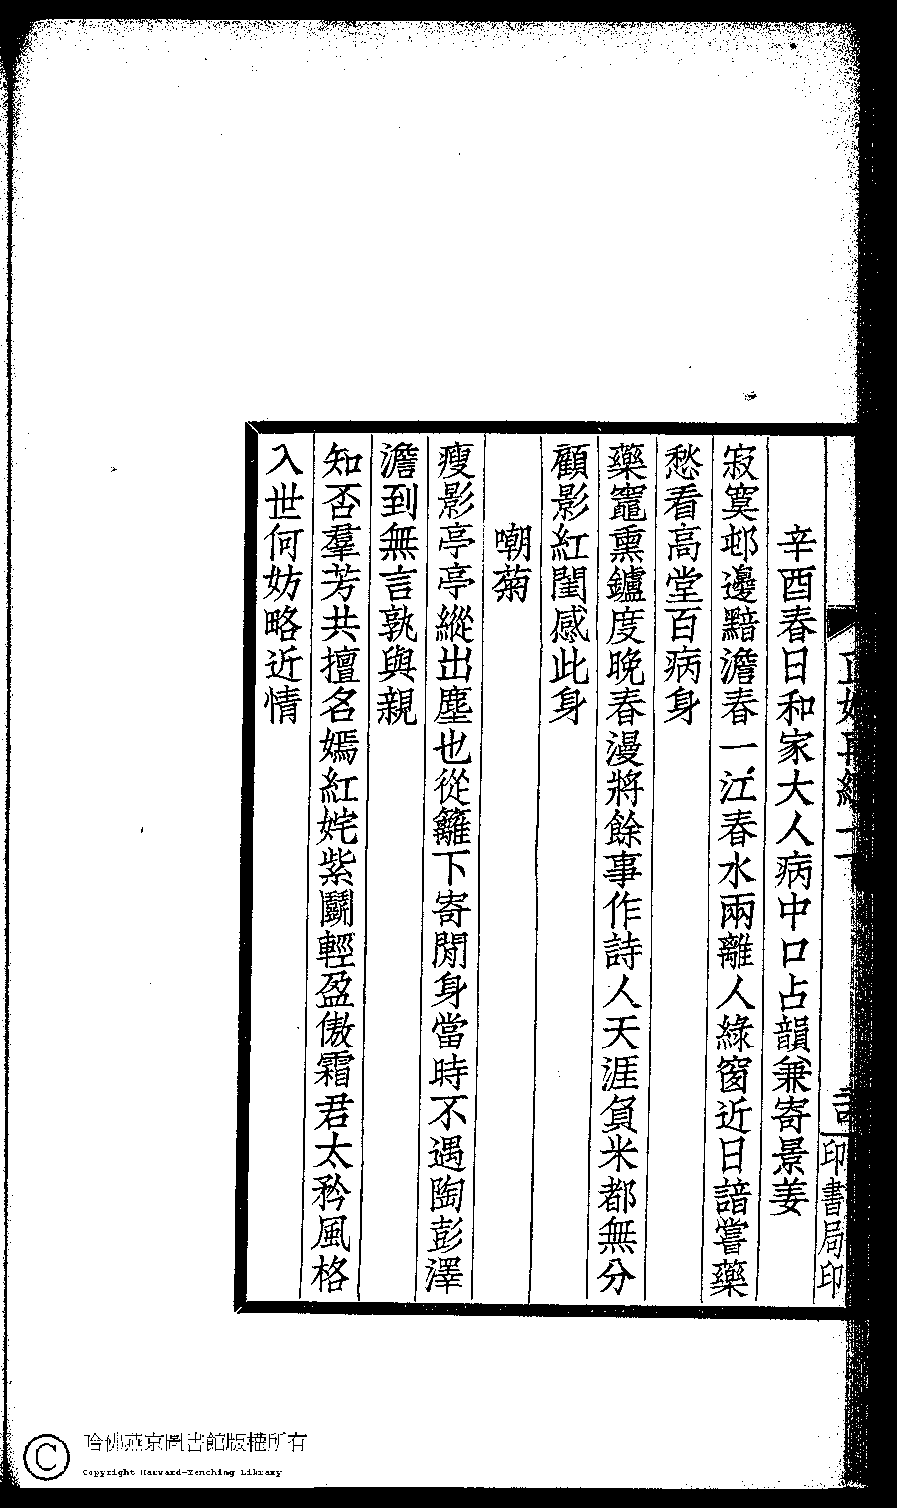 辛酉春日和家大人病中口占韻兼寄景姜
寂寞邨邊黯澹春一江春水兩離人綠窗近日諳嘗藥
愁看高堂百病身
藥竈熏鑪度晚春漫將餘事作詩人天涯負米都無分
顧影紅閨感此身
嘲菊
瘦影亭亭縱出塵也從籬下寄閒身當時不遇陶彭澤
澹到無言孰與親
知否羣芳共擅名嫣紅姹紫鬭輕盈傲霜君太矜風格
入世何妨略近情
印書局印
哈佛燕京圖書館版權所有
Copyright Harvard-Yenching Library